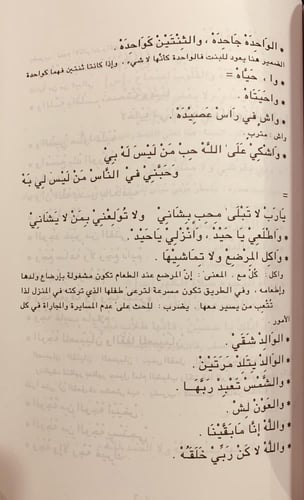 • الواحِدَهْ جَاحِدَهْ ، والثِّنْتَيْنْ كَواحِدَهْ .
الضمير هنا يعود للبنت فالواحدة كأنها لا شيء . وإذا كانتا ثنتين فهما كواحدة
• وا ، حَيَاهْ =
• واحَيَتَاهْ .
• واش في رَاسْ عَصِيدَهْ .
واش : متربِ
• وَاشْكِي عَلَى اللَّهْ حِب مَنْ لَيْس لَهْ بِي
وَحَبَّنِي فيْ النَّاسْ مَنْ لَيْس لِي بَهْ
=
يَارَبْ لا تَبْلَى مَحِب بِشَانِي ولا تُولِعْنِي بِمَنْ لا يَشَانِي
• وَاطْلَعِي يَا حَيْد ، وَانْزِلِي يَاحَيد .
• وَاكِل الْمِرْضِعْ وَلا تمَاشِيْهَا .
واكل : كُلْ مع . المعنى : إنّ المرضع عند الطعام تكون مشغولة بإرضاع ولدها
وإطعامه ، وفي الطريق تكون مسرعة لترعى طفلها الذي تركته في المنزل لذا
تُتْعِب من يسير معها . يضرب : للحث على عدم المسايرة والمجاراة في كل
الأمور .
• الوالِدْ شَقَيْ .
• الْوَالِدْ يِتْلَدْ مَرّتَيْنْ .
• والشَّمْسْ تَعْبِدْ رَبَّهَا .
• والعَوْنْ لِشْ .
• واللَّهْ إنّا مَابَقَيْنَا .
• واللَّهْ لا كَنْ رَبِّيْ خَلَقَهْ .